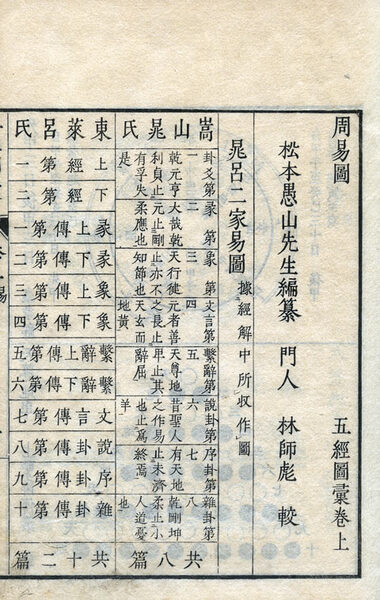 周易圖　五經圖彙卷上
松本愚山先生編纂　門人　林師彪　較
晁呂二家易圖　據經解中所収作圖
嵩山晁氏
卦爻第一　乾元亨利貞止有孚失是
彖第二　大哉乾元止剛柔應也
象第三　天行徤止亦不知節也
文言第四　元者善之長止天玄而地黃
繫辭第五　天尊地卑止其辭屈
說卦第六　昔聖人之作易也止爲羊
序卦第七　有天地止未濟終焉
雜卦第八　乾剛坤柔止小人道憂也
共八篇
東萊呂氏
上經第一
下經第二
彖上傳第一
彖下傳第二
象上傳第三
象下傳第四
繫辭上傳第五
繫辭下傳第六
文言傳第七
說卦傳第八
序卦傳第九
雜卦傳第十
共十二篇